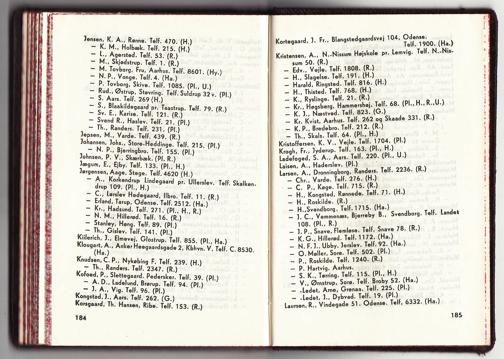 Jensen, K. A., Rønne. Telf. 470. (H.)
— K. M., Holbæk. Telf. 215. (H.)
— L., Agersted. Telf. 53. (R.)
— M., Skjødstrup. Telf. 1. (R.)
— M. Tovborg, Fru, Aarhus. Telf. 8601. (Hv.)
— N. P., Vonge. Telf. 4. (Ha.)
— P. Tovborg, Skive. Telf. 1085. (Pl., U.)
— Rud., Østrup, Støvring. Telf. Suldrup 32 v. (Pl.)
— S. Aars. Telf. 269 (H.)
— S., Blaakildegaard pr. Taastrup. Telf. 79. (R.)
— Sv. E., Karise. Telf. 121. (R.)
— Svend R., Haslev. Telf. 21. (Pl.)
— Th., Randers. Telf. 231. (Pl.)
Jepsen, M., Varde. Telf. 439. (R.)
Johansen, Johs., Store-Heddinge. Telf. 215. (Pl.)
— N. P., Bjerringbro. Telf. 155. (Pl.)
Johnsen, P. V., Skærbæk. (Pl. R.)
Jægum, E., Eby. Telf. 133. (Pl., H.)
Jørgensen, Aage, Stege. Telf. 4620 (H.)
— A., Korkendrup Lindegaard pr. Ullerslev. Telf. Skalken-
drup 109. (Pl., H.)
— C., Lerslev Hedegaard, Elbro. Telf. 11. (R.)
— Erland, Tarup, Odense. Telf. 2512. (Ha.)
— Kr., Hadsund. Telf. 271. (Pl., H., R.)
— N. M., Hillerød. Telf. 16. (R.)
— Stanley, Høng. Telf. 89. (Pl.)
— Th., Gislev. Telf. 141. (Pl.)
Killerich, J., Elmevej, Glostrup. Telf. 855. (Pl., Ha.)
Klougart, A., Asker Høegaardsgade 2, Kbhvn. V. Telf. C. 8530.
(Ha.)
Knudsen, C. P., Nykøbing F. Telf. 239. (H.)
— Th., Randers. Telf. 2347. (R.)
Kofoed, P., Slettegaard, Pedersker. Telf. 39. (Pl.)
— A. D., Ladelund, Brørup. Telf. 94. (Pl.)
— J. A., Vig. Telf. 96. (Pl.)
Kongstad, J., Aars. Telf. 262. (G.)
Korsgaard, Th. Hansen, Ribe. Telf. 153. (R.)
184
Kortegaard, J. Fr., Blangstedgaardsvej 104, Odense.
Telf. 1900. (Ha.)
Kristensen, A., N.-Nissum Højskole pr. Lemvig. Telf. N.-Nis-
sum 50. (R.)
— Edv., Vejle. Telf. 1808. (R.)
— H., Slagelse. Telf. 191. (H.)
— Harald, Ringsted. Telf. 816. (H.)
— H., Thisted. Telf. 768. (H.)
— K., Ryslinge. Telf. 21. (R.)
— Kr., Høgsberg, Hammershøj. Telf. 68. (Pl., H., R., U.)
— K. J., Næstved. Telf. 823. (G.)
— Kr. Kvist, Aarhus. Telf. 262 og Skaade 331. (R.)
— K. P., Bredebro. Telf. 212. (R.)
— Th., Skals. Telf. 64. (Pl., H.)
Kristoffersen, K. V., Vejle. Telf. 1704. (Pl.)
Krogh, Fr., Jyderup. Telf. 163. (Pl., H.)
Ladefoged, S. A., Aars. Telf. 220. (Pl., U.)
Laisen, A., Haderslev. (Pl.)
Larsen, A., Dronningborg, Randers. Telf. 2236. (R.)
— Chr., Varde. Telf. 276. (H.)
— C. P., Køge. Telf. 715. (R.)
— H., Kongsted, Rønnede. Telf. 71. (H.)
— H., Roskilde. (R.)
— H., Svendborg. Telf. 1715. (Ha.)
— J. C., Vammonøs, Bjerreby B., Svendborg. Telf. Landet
108. (Pl., R.)
— J. P., Snave, Flemløse. Telf. Snave 78. (R.)
— K. G., Hillerød. Telf. 1172. (Ha.)
— N. F. J., Ubby, Jerslev. Telf. 92. (Ha.)
— O. Møller, Sorø. Telf. 502. (Pl.)
— P., Roskilde. Telf. 1240. (R.)
— P. Hartvig, Aarhus.
— S. K., Tørring. Telf. 115. (Pl., H.)
— V., Ømstrup, Sorø. Telf. Broby 52. (Ha.)
-Ledet, Arne, Grenaa. Telf. 225. (Pl.)
-Ledet, J., Dybvad. Telf. 19. (Pl.)
Laursen, R., Vindegade 51, Odense. Telf. 6332. (Ha.)
185